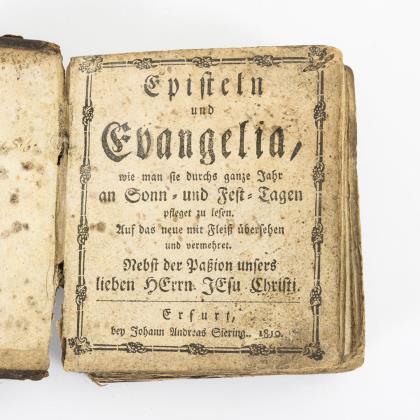 Episteln
und
Evangelia,
wie man sie durchs ganze Jahr
an Sonn- und Fest-Tagen
pfleget zu lesen.
Auf das neue mit Fleiß übersehen
und vermehret.
Nebst der Paßion unsers
lieben HErrn JEsu Christi.
Erfurt,
bey Johann Andreas Siering.. 1810.